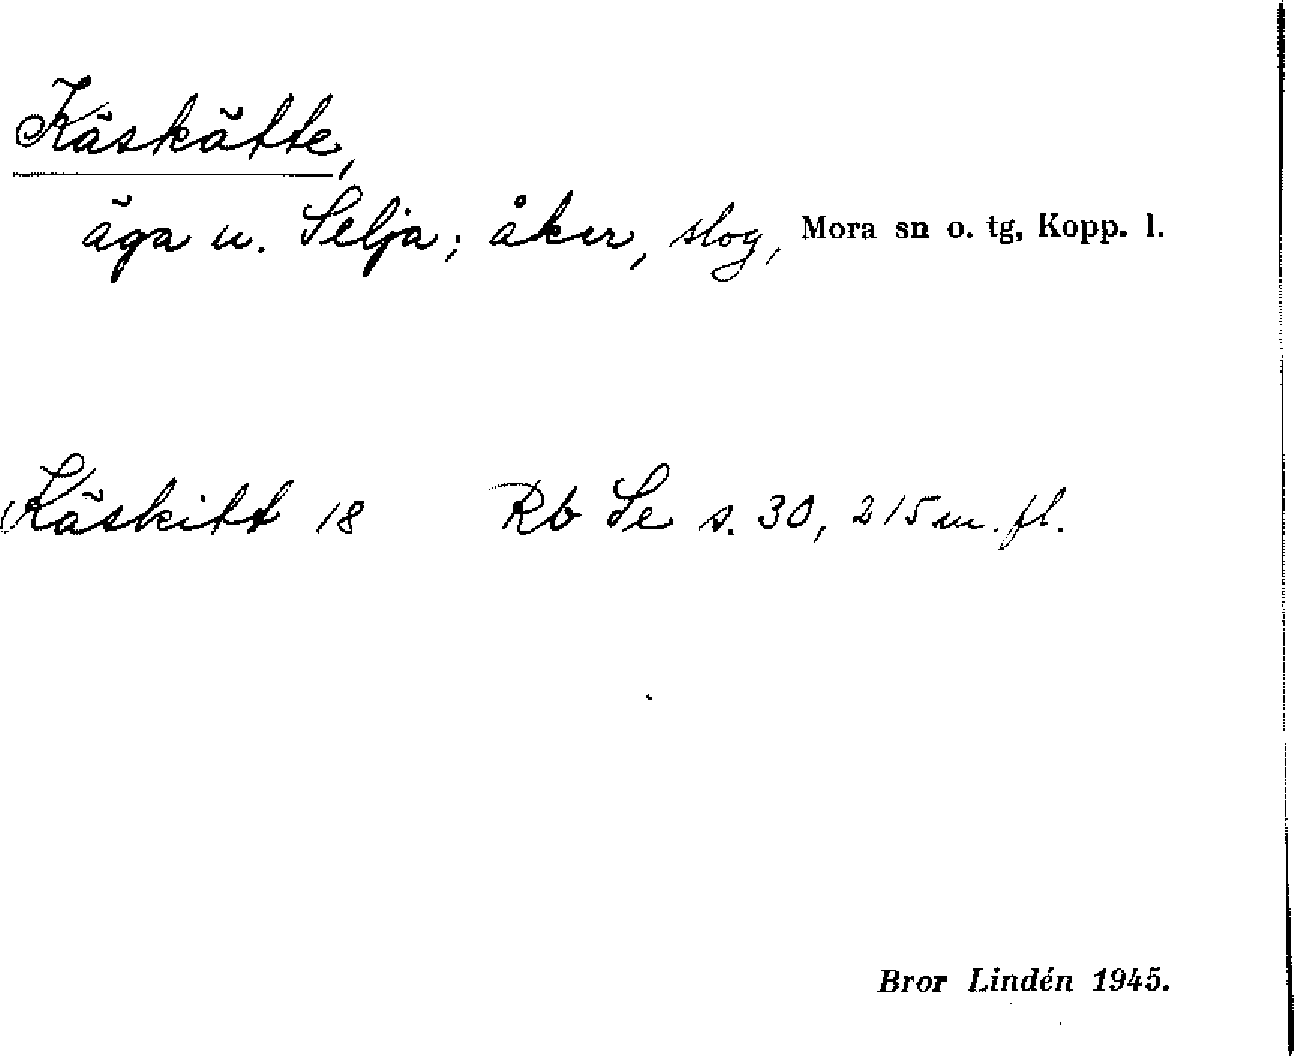 Käskätte,
äga u. Selja; åker, slog, Mora sn o. tg, Kopp. l.
Käskitt 18 Rb Se s. 30, 215 m. fl.
Bror Lindén 1945.